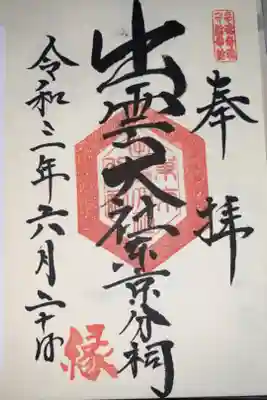 奉拝
出雲大社東京分祠
令和三年六月二十日
縁